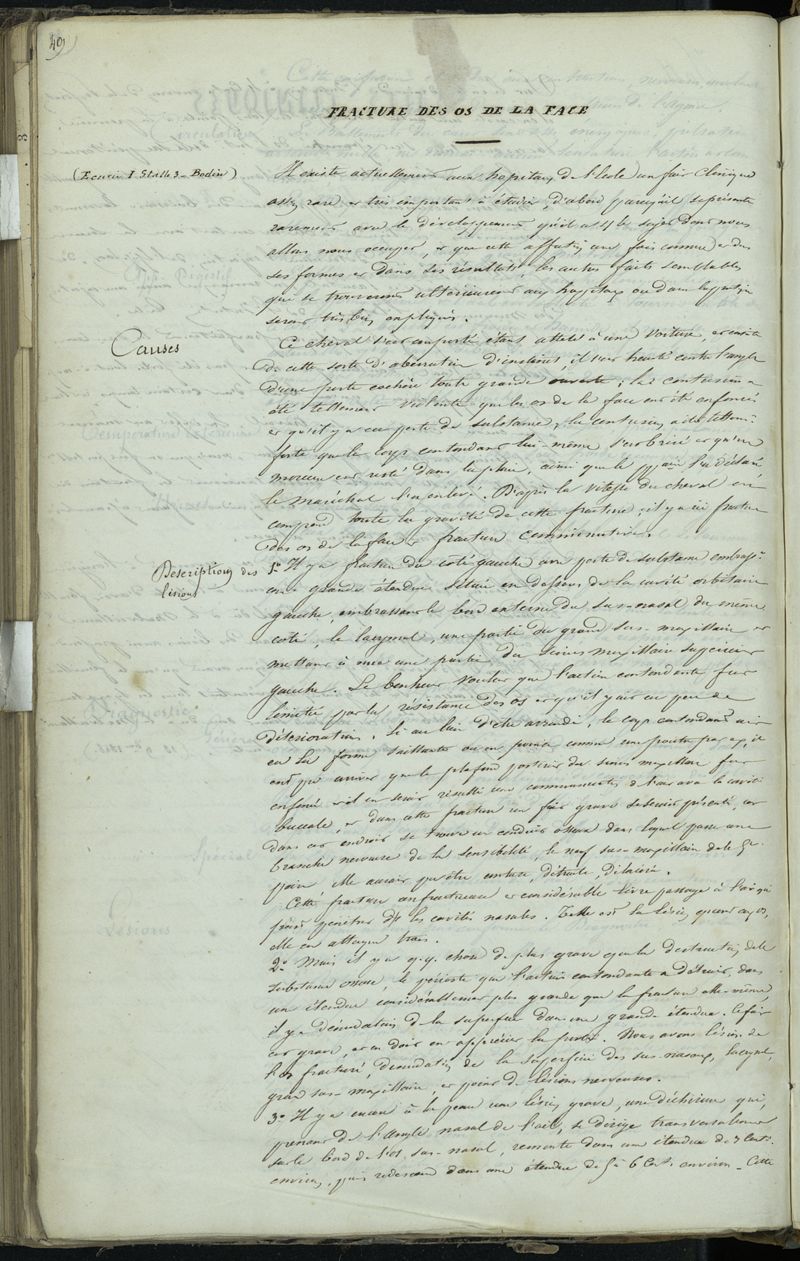 49
FRACTURE DES OS DE LA FACE
(Ecurie I Stalle 3 - Bodin)
Il existe actuellement aux hopitaux de l'Ecole un fait clinique
assez rare et très important à étudier d'abord parcequ'il se présente
rarement avec le développement qu'il a sur le sujet dont nous
allons nous occuper, et que cette affection une fois connue et dans
ses formes et dans ses résultats, les autres faits semblables
qui se trouveront ultérieurement aux hopitaux ou dans la pratique
seront très bien expliqués.
Causes
Ce cheval s'est emporté étant attelé à une voiture, et ensuite
de cette sorte d'aberration d'instinct, il s'est heurté contre l'angle
d'une porte cochère toute grande ouverte ; la contusion a
été tellement violente que les os de la face ont été enfoncés
et qu'il y a eu perte de substance ; la contusion a été tellement
forte que le corps contondant lui-même s'est brisé et qu'un
morceau est resté dans la plaie, ainsi que le l'a déclaré
le maréchal l'a enlevé. D'après la vitesse du cheval on
comprend toute la gravité de cette fracture ; il y a eu fracture
des os de la face et fracture comminutive.
Descriptions des
lésions
1o Il y a fracture du coté gauche avec perte de substance embrasst
une grande étendue située en dessous de la cavité orbitaire
gauche, embrassant le bord antérieur du sus-nasal du même
coté, le lacrymal, une partie du grand sus-maxillaire et
mettant à nu une partie du sinus maxillaire supérieur
gauche. Le bonheur voulut que l'action contondante fut
limitée par la résistance des os et qu'il y ait eu peu de
détérioration. Si au lieu d'être arrondi, le corps contondant avait
eu la forme saillante ou en pointe comme une pointe par ex, il
eut pu arriver que le plafond postérieur du sinus maxillaire fut
enfoncé et il en serait résulté une communication de l'air avec la cavité
buccale, et dans cette fracture un fait grave se serait présenté, car
dans cet endroit se trouve un conduit osseux dans lequel passe une
branche nerveuse de la sensibilité, le nerf sus-maxillaire de la 5e
paire, elle aurait pu être contuse, détruite, dilacérée.
Cette fracture anfractueuse et considérable livre passage à l'air qui
peut pénétrer ds les cavités nasales. Telle est la lésion quant aux os,
elle en attaque trois.
2o Mais il y a q.q. chose de plus grave que la destruction de la
substance osseuse, le périoste que l'action contondante a détruit, dans
une étendue considérablement plus grande que la fracture elle-même,
il y a dénudation de la surface dans une grande étendue. Le fait
est grave, et on doit en apprécier la portée. Nous avons lésion de
l'os fracturé, dénudation de la superficie des sus-nasaux, lacrymal,
grand sus-maxillaire, et point de lésions nerveuses.
3o Il y a encore à la peau une lésion grave, une déchirure qui,
prenant de l'angle nasal de l'œil, se dirige transversalement
sur le bord de l'os sus-nasal, remonte dans une étendue de 7 cent.
environ, puis redescend dans une étendue de 5 à 6 cent. environ - Cette